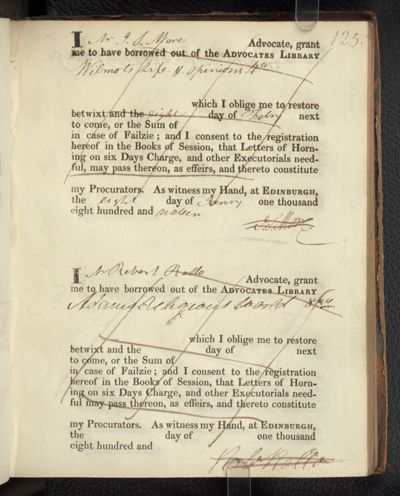 125.
I Mr J. S. More Advocate, grant
me to have borrowed out of the ADVOCATES LIBRARY
Wilmots life & opinions 4to
which I oblige me to restore
betwixt and the eight day of Febry next
to come, or the Sum of
in case of Failzie; and I consent to the registration
hereof in the Books of Session, that Letters of Horn-
ing on six Days Charge, and other Executorials need-
ful, may pass thereon, as effeirs, and thereto constitute
my Procurators. As witness my Hand, at EDINBURGH,
the eight day of Janry one thousand
eight hundred and sixteen
J. S. More
I Mr Robert Rollo Advocate, grant
me to have borrowed out of the ADVOCATES LIBRARY
Adams Religious World 8vo
which I oblige me to restore
betwixt and the day of next
to come, or the Sum of
in case of Failzie; and I consent to the registration
hereof in the Books of Session, that Letters of Horn-
ing on six Days Charge, and other Executorials need-
ful may pass thereon, as effeirs, and thereto constitute
my Procurators. As witness my Hand, at EDINBURGH,
the day of one thousand
eight hundred and
Robt Rollo